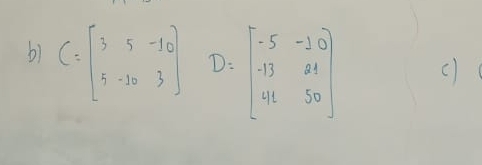 b) C = [3 5 -10
5 -10 3]
D = [-5 -10
-13 21
41 50]
c)